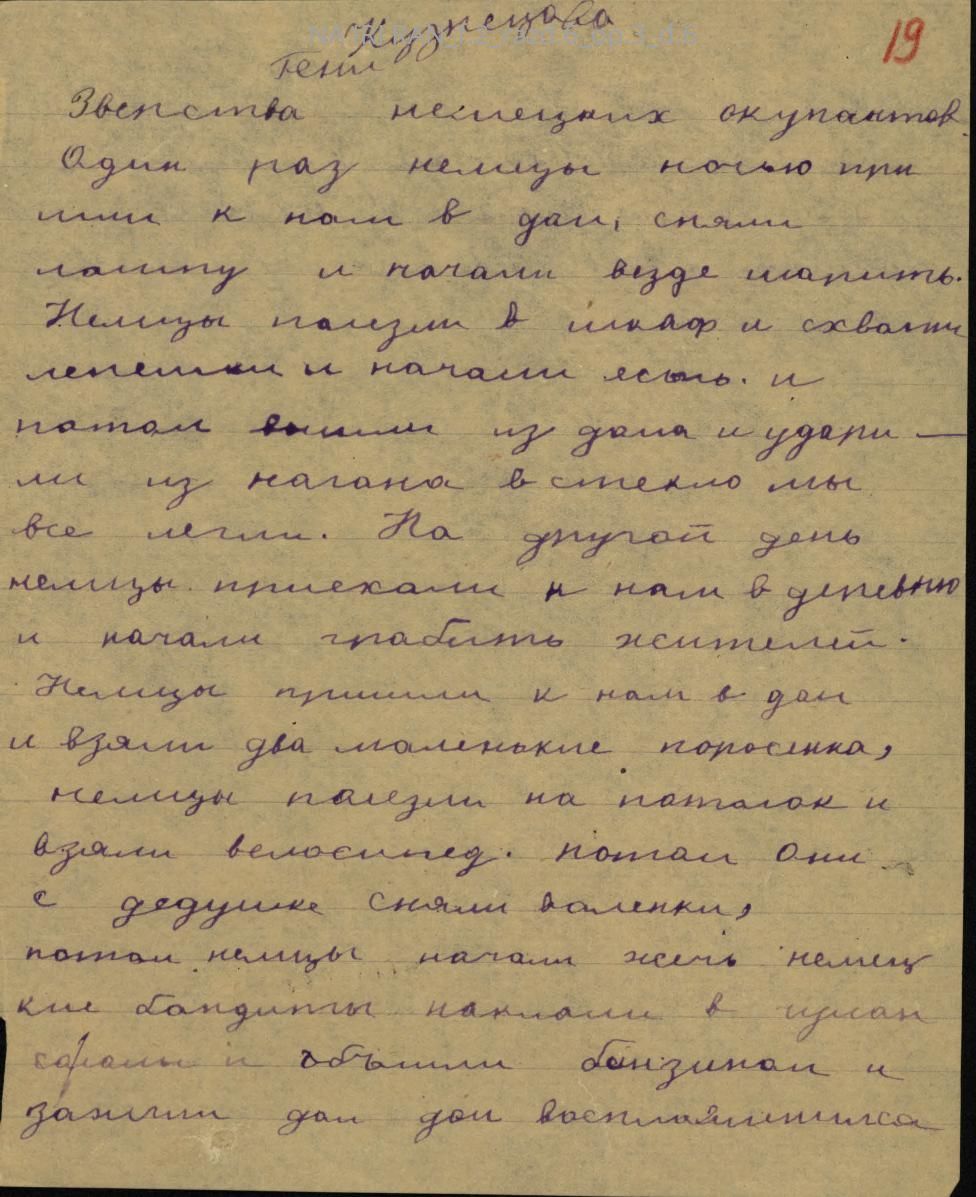 Кузнецова
19
Гени
Зверства немецких окупантов.
Один раз немицы ночью при
шли к нам в дом, сняли
лампу и начали везде шарить.
Немицы полезли в шкаф и схватили
лепешки и начали есть. и
потом вышли из дома и удари —
ли из нагана в стекло мы
все легли. На другой день
немицы приехали к нам в деревню
и начали грабить жителей.
Немицы пришли к нам в дом
и взяли два маленькие поросенка,
немицы полезли на потолок и
взяли велосипед. потом они
с дедушке сняли валенки,
потом немицы начали жечь немец
кие бандиты наклали в чулан
соломы и объшли бензином и
зажгли дом дом воспламянился